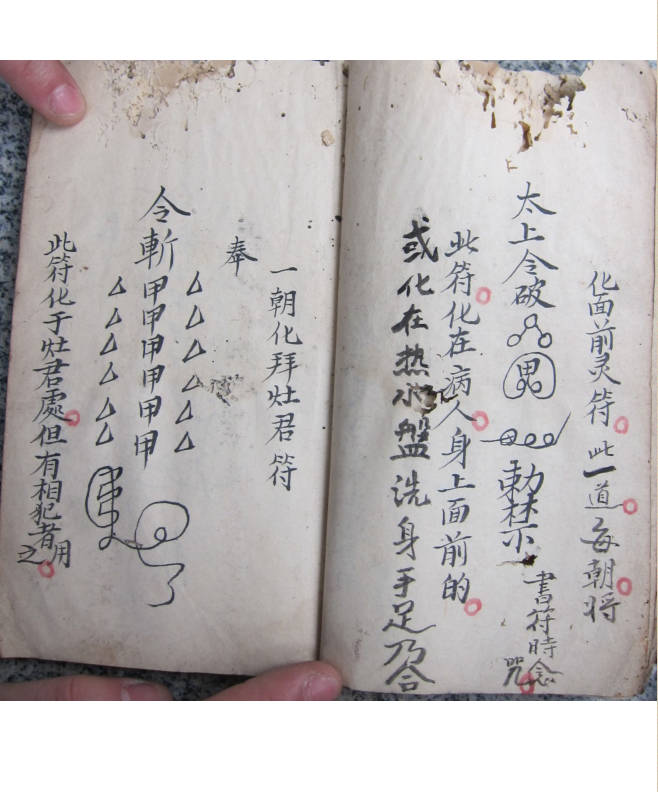 化面前灵符此一道每朝将
太上令破
勅禁
書符時念
咒
此符化在病人身上面前的
或化在热水盤洗身手足乃合
一朝化拜灶君符
奉
令斬甲甲甲甲甲甲
此符化于灶君處但有相犯者用
之